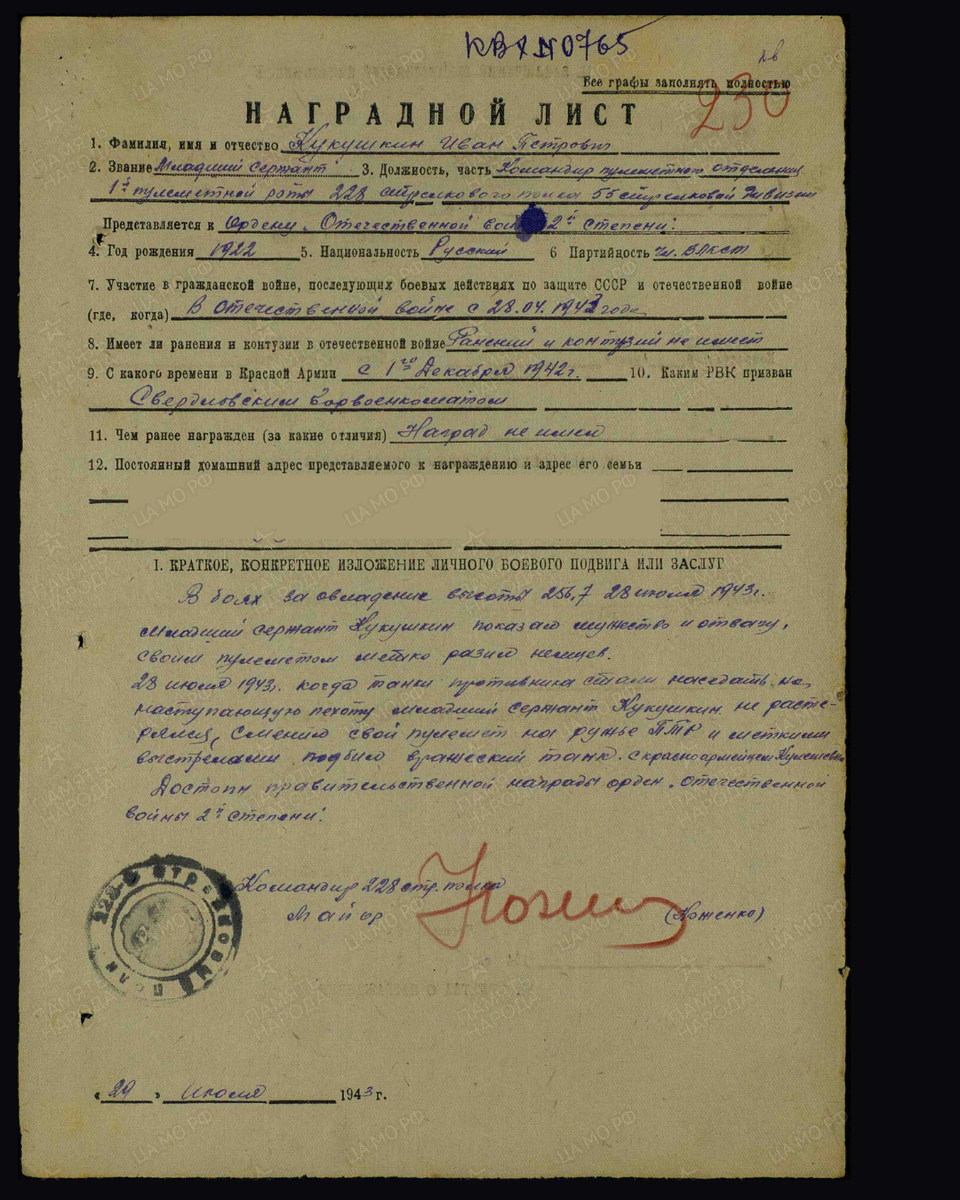 КВХ N0765
Все графы заполнять полностью
230
НАГРАДНОЙ ЛИСТ
1. Фамилия, имя и отчество Кукушкин Иван Петрович
2. Звание Младший сержант 3. Должность, часть Командир пулеметного отделения
1й пулеметной роты 228 стрелкового полка 55 стрелковой дивизии
Представляется к Ордену „Отечественной войны 2й степени."
4. Год рождения 1922 5. Национальность Русский 6 Партийность чл. ВЛКСМ
7. Участие в гражданской войне, последующих боевых действиях по защите СССР и отечественной войне
(где, когда) В Отечественной войне с 28.04.1943 года
8. Имеет ли ранения и контузии в отечественной войне Ранений и контузий не имеет
9. С какого времени в Красной Армии с 1го Декабря 1942 г. 10. Каким РВК призван
Свердловским Горвоенкоматом
11. Чем ранее награжден (за какие отличия) Наград не имел
12. Постоянный домашний адрес представляемого к награждению и адрес его семьи
I. КРАТКОЕ, КОНКРЕТНОЕ ИЗЛОЖЕНИЕ ЛИЧНОГО БОЕВОГО ПОДВИГА ИЛИ ЗАСЛУГ
В боях за овладение высоты 256,7 28 июля 1943 г.
Младший сержант Кукушкин показал мужество и отвагу,
своим пулеметом метко разил немцев.
28 июля 1943 г. когда танки противника стали наседать на
наступающую пехоту младший сержант Кукушкин не расте-
рялся, сменил свой пулемет на ружье ПТР и меткими
выстрелами подбил вражеский танк. с красноармейцем
Достоин правительственной награды орден „Отечественной
войны 2й степени."
Командир 228 стр. полка
Майор (Коженко)
228-Й СТРЕЛКОВЫЙ ПОЛК
« 29 » Июля 1943 г.
ЦА МО РФ
ПАМЯТЬ НАРОДА